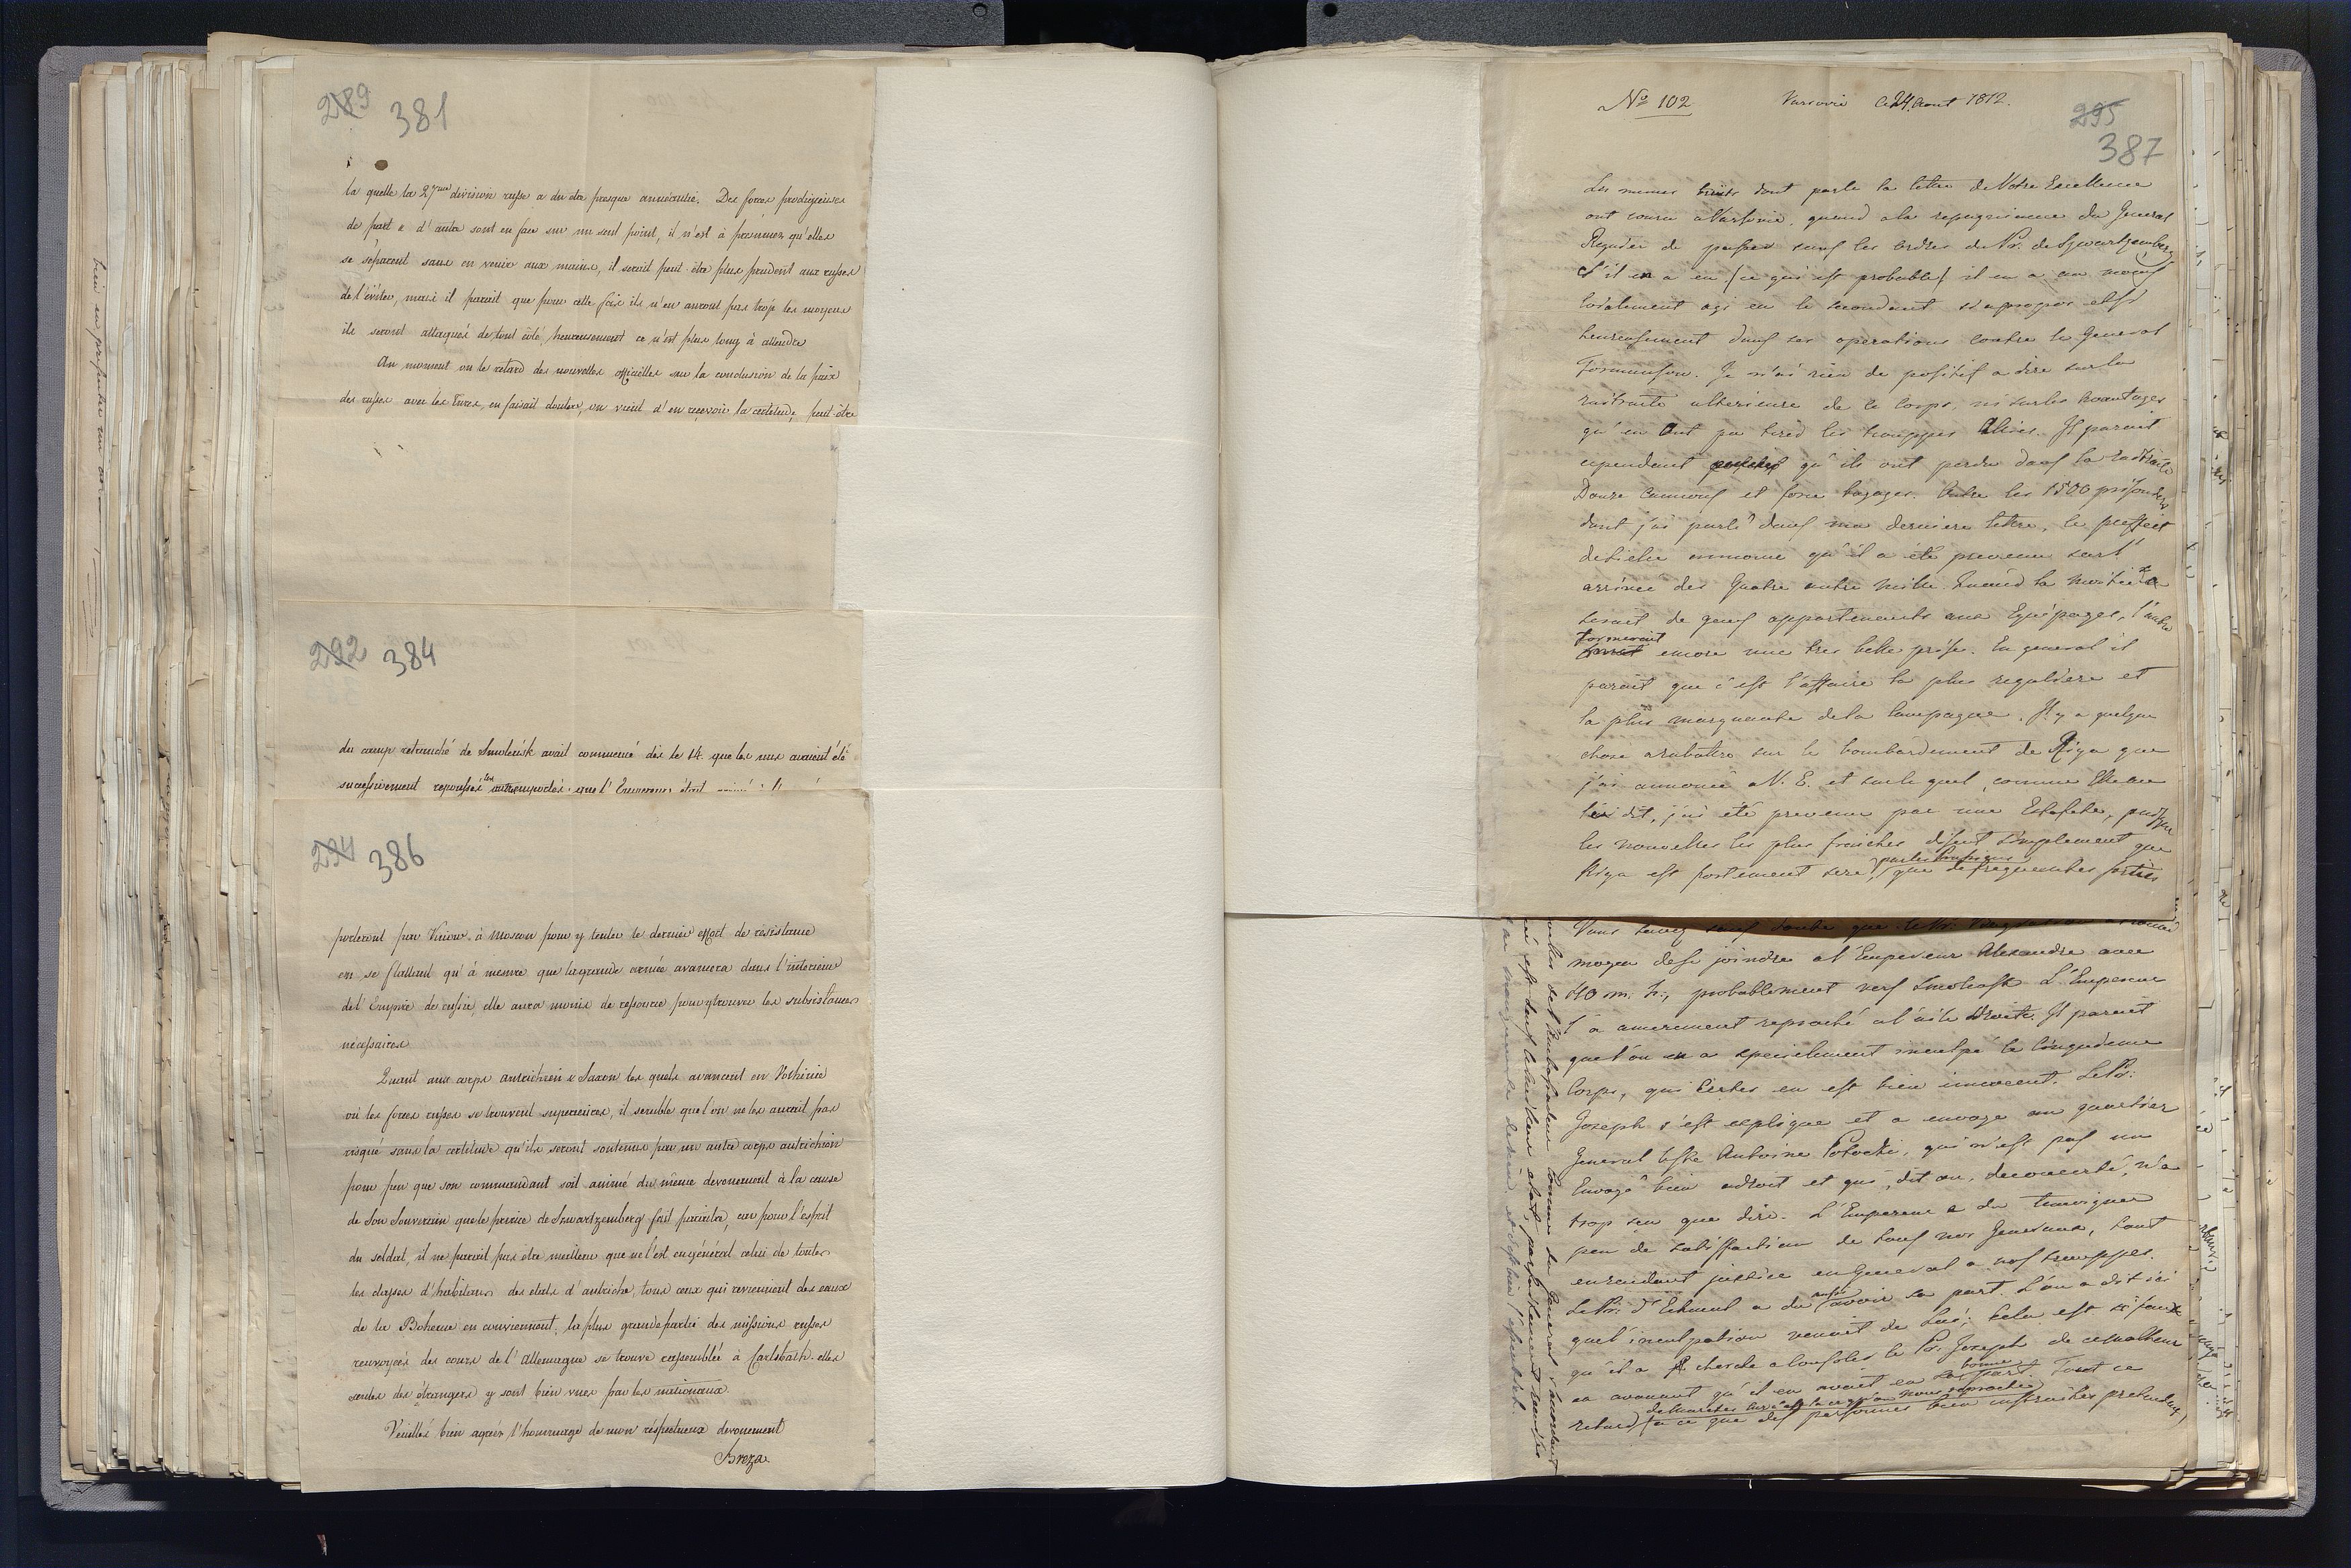 289 381
la quelle la 27me division russe a du etre presque aneantie. Des forces prodigieuses
de part e d'autre sont en face sur un seul point, il n'est à présumer qu'elles
se séparent sans en venir aux mains, il serait peut-être plus prudent aux russes
de l'éviter, mais il parait que pour cette fois ils n'en auront pas trop les moyens
ils seront attaqués de tout côté, heureusement ce n'est plus long à attendre
Au moment ou le retard des nouvelles officielles sur la conclusion de la paix
des russes avec les Turcs, en faisait douter, on vient d'en recevoir la certitude, peut-être
292 384
du camp retranché de Smolensk avait commencé dès le 14. que les uns avaient été
successivement repoussés les autres emportés, que l'Empereur était
294 386
porteront par Kiow à Moscou pour y tenter le dernier effort de résistance
en se flattant qu'à mesure que la grande armée avancera dans l'interieur
de l'Empire de russie, elle aura moins de ressource pour y trouver les subsistances
necessaires
Quant aux corps autrichien e Saxon les quels avancent en Volhinie
où les forces russes se trouvent superieures, il semble que l'on ne les aurait pas
risqué sans la certitude qu'ils seront soutenus par un autre corps autrichien
pour peu que son commandant soit animé du même devouement à la cause
de Son Souverain que le prince de Swartzemberg fait paraitre, car pour l'esprit
du soldat, il ne parait pas etre meilleur que ne l'est en général celui de toutes
les classes d'habitans des etats d'autriche, tous ceux qui reviennent des eaux
de la Boheme en conviennent, la plus grande partie des missions russes
renvoyées des cours de l'Allemagne se trouve rassemblée à Carlsbath. elles
seules des étrangers y sont bien vues par les nationaux.
Veuillés bien agréer l'hommage de mon réspectueux devouement
Breza.
No 102 Varsovie le 24 Aout 1812.
295
387
Les memes bruits dont parle la lettre de Votre Excellence
ont couru a Varsovie, quand a la repugnance du General
Regnier de passer sous les ordres du Pr. de Szwartzemberg
S'il en a eu (ce qui est probable) il en a au moins
loialement agi en le secondant si apropos et si
heureusement dans ses operations contre le General
Tormansow. Je n'ai rien de positif a dire sur la
retraite ulterieure de ce Corps, ni sur les avantages
qu'en ont pu tirer les trouppes Aliées. Il parait
cependant qu'ils ont perdu dans la retraite
Douze Canons et force bagages. Outre les 1500 prisonniers
dont j'ai parlé dans ma derniere lettre, le preffect
de Siedlce annonce qu'il a été prevenu sur l'
arrivée des Quatre autre mille. Quand la moitié
serait de gens appartenants aux Equipages, l'autre
formerait encore une tres belle prise. En general il
parait que c'est l'affaire la plus reguliere et
la plus marquante de la Campagne. Il y a quelque
chose a rabattre sur le bombardement de Riga que
j'ai annoncé a V. E. et sur le quel, comme Elle me
l'a dit, j'ai été prevenu par une Estafette, puisque
les nouvelles les plus fraiches disent simplement que
Riga est fortement serré, par les Prussiens que de frequentes sorties
moyen de se joindre a l'Empereur Alexandre avec
40 m. h., probablement vers Smolensk L'Empereur
l'a amerement reproché a l'aile Droite. Il parait
que l'on en a specialement inculpé le Cinquieme
Corps, qui Certes en est bien innocent. Le Pr.
Joseph s'est expliqué et a envoyé au quartier
General le Cte Antoine Potocki, qui n'est pas un
Envoyé bien adroit et qui, dit on, deconcerté, n'a
trop su que dire. L'Empereur a du temoigner
peu de satisfaction de tous nos Generaux, tout
en rendant justice en General a nos trouppes.
Le Pr. d'Eckmul a du aussi avoir sa part. L'on a dit ici
que l'inculpation venait de lui; Cela est si faux
qu'il a cherché a consoler le Pr. Joseph de ce malheur
en avouant qu'il en avait eu sa bonne part. Tout ce
retard de marches a ce que des personnes bien instruites pretendent